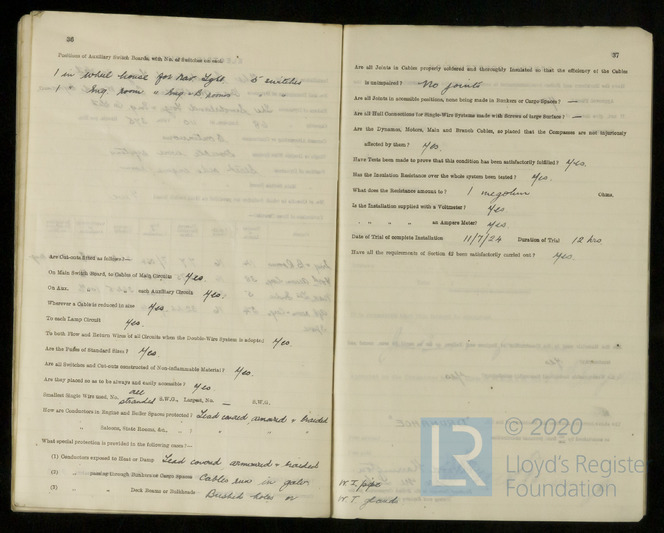 36
Positions of Auxiliary Switch Boards, with No. of Switches on each
1 in Wheel house for Nav. Light 5 switches
1 " Eng. room " Eng. & B. rooms " "
Are Cut-outs fitted as follows?—
On Main Switch Board, to Cables of Main Circuits Yes.
On Aux. " " each Auxiliary Circuit Yes.
Wherever a Cable is reduced in size Yes.
To each Lamp Circuit Yes.
To both Flow and Return Wires of all Circuits when the Double-Wire System is adopted Yes.
Are the Fuses of Standard Sizes? Yes.
Are all Switches and Cut-outs constructed of Non-inflammable Material? Yes.
Are they placed so as to be always and easily accessible? Yes.
Smallest Single Wire used, No. all stranded S.W.G., Largest, No. — S.W.G.
How are Conductors in Engine and Boiler Spaces protected? Lead covered, armoured & braided
" " Saloons, State Rooms, &c., " ? " " "
What special protection is provided in the following cases?—
(1) Conductors exposed to Heat or Damp Lead covered armoured & braided
(2) " passing through Bunkers or Cargo Spaces Cables run in
(3) " " Deck Beams or Bulkheads Bushed holes or
37
Are all Joints in Cables properly soldered and thoroughly insulated so that the efficiency of the Cables
is unimpaired? No joints
Are all Joints in accessible positions, none being made in Bunkers or Cargo Spaces? —
Are all Hull Connections for Single-Wire Systems made with Screws of large Surface? —
Are the Dynamos, Motors, Main and Branch Cables, so placed that the Compasses are not injuriously
affected by them? Yes.
Have Tests been made to prove that this condition has been satisfactorily fulfilled? Yes.
Has the Insulation Resistance over the whole system been tested? Yes.
What does the Resistance amount to? 1 megohm Ohms.
Is the Installation supplied with a Voltmeter? Yes.
" " " " an Ampere Meter? Yes.
Date of Trial of complete Installation 11/7/24 Duration of Trial 12 hrs
Have all the requirements of Section 42 been satisfactorily carried out? Yes.
W. I. pipe
W. T. gland
LR
© 2020
Lloyd's Register
Foundation